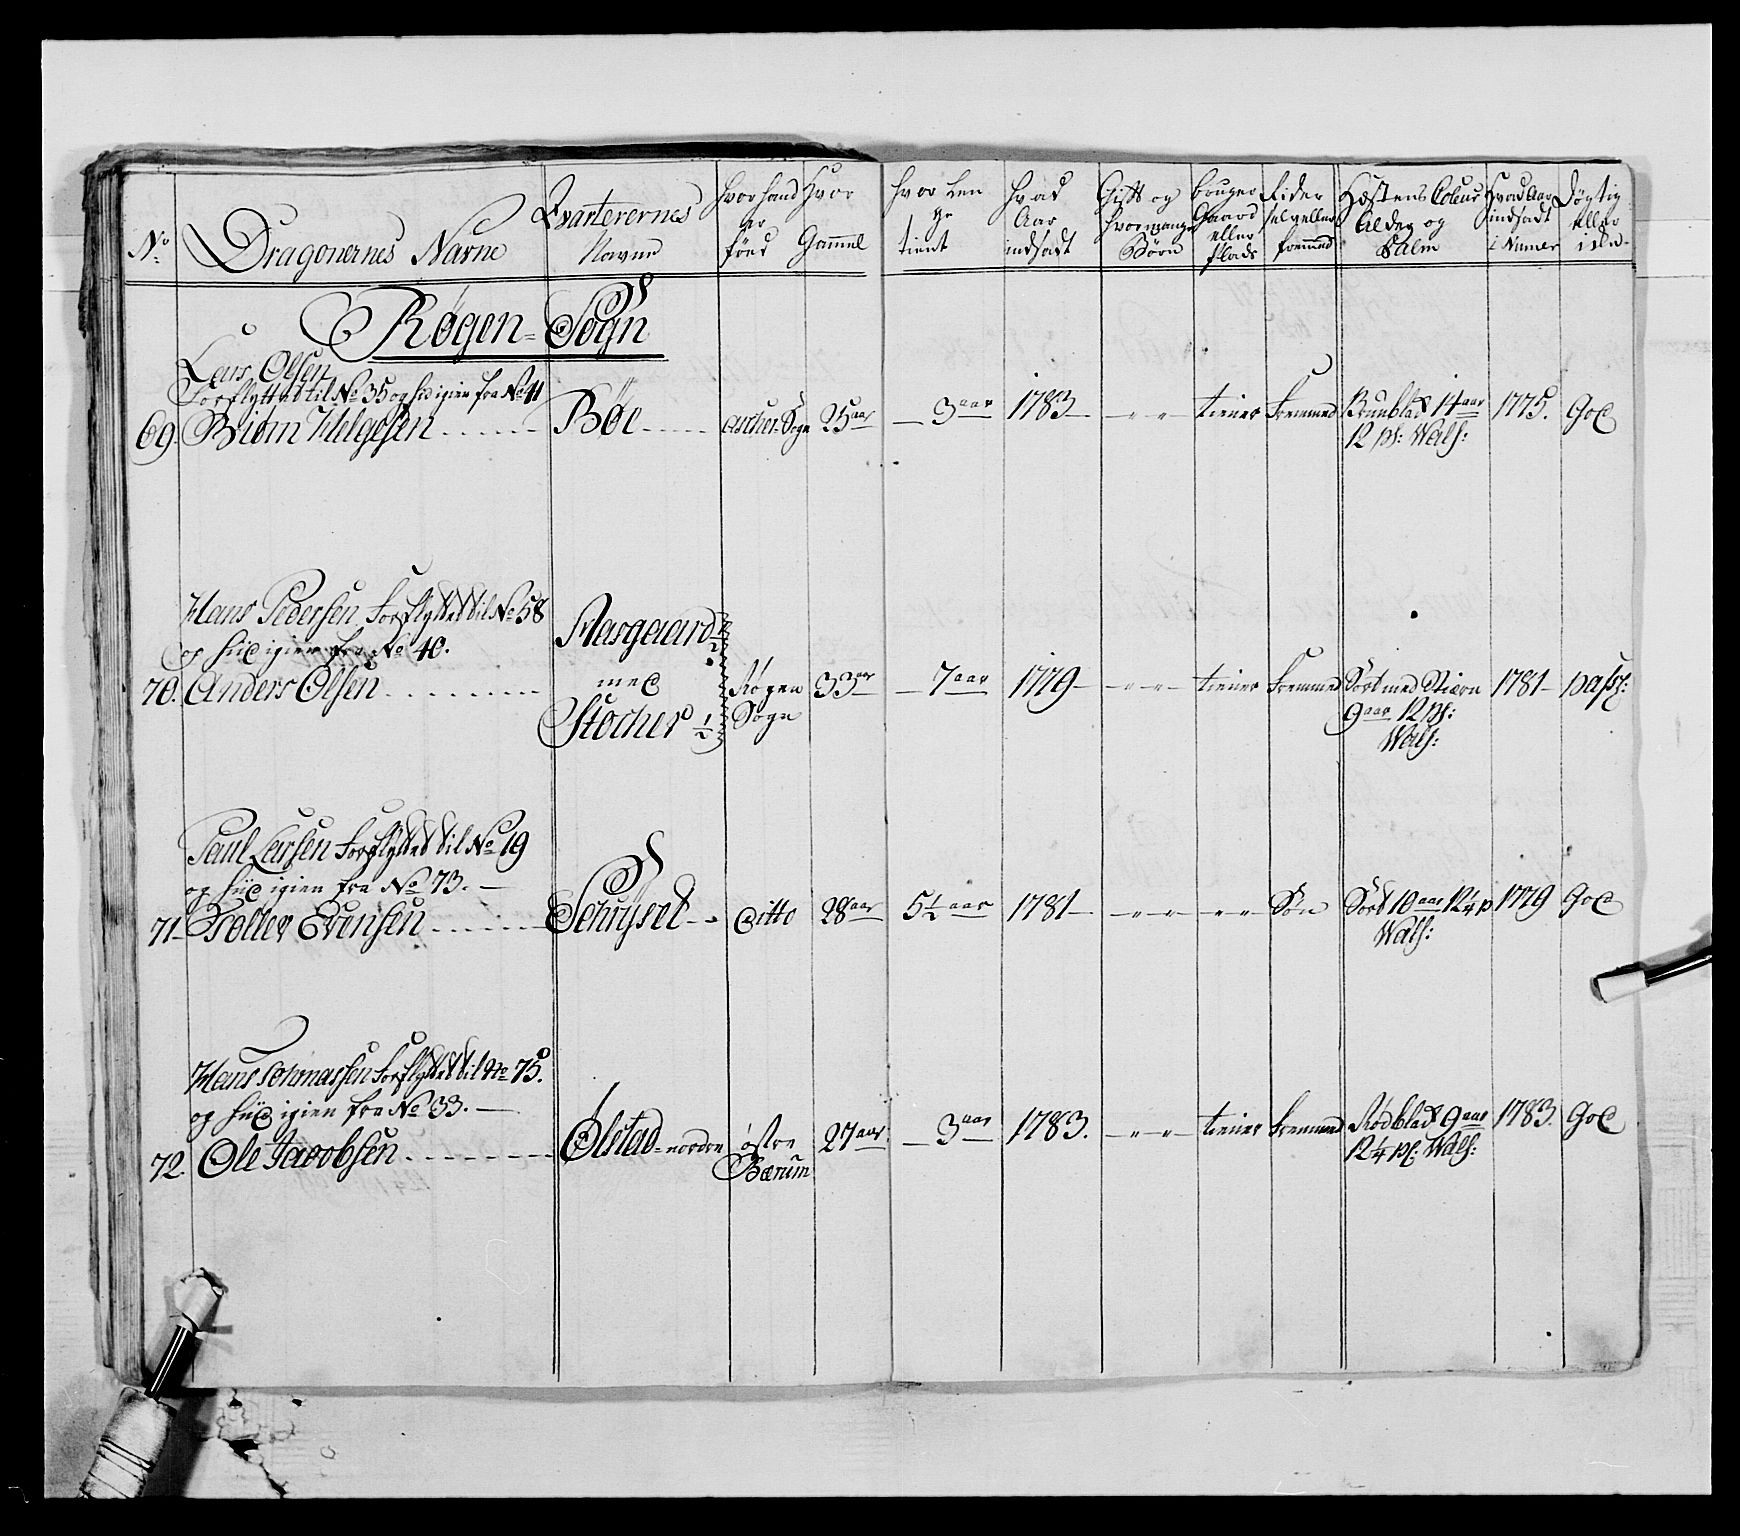 No
Dragonernes Navne
Qvarterernes Navne
hvor hand er född
hvor Gammel
hvor Lenge tient
hvad Aar indsadt
Gift og hvor mange Börn
bruger Gaard eller Plads
Rider selv eller fremmed
Hæstens Coleur Alder og Palm
Hvad Aar indsadt i Numer
Døgtig eller
Røgen Sogn
Lars Olsen
Forflyttet til No 35 og hid igien fra No 41
69. Biørn Helgesen Bøe Ascher Sogn 25 aar 3 aar 1783 tiener Fremmed Brunblad 14 aar 1775. God
12 pf: Wals:
Hans Pedersen Forflytted til No 58
og hid igien fra No 40.
70. Anders Olsen Aasgaard 1/2 med Stocher 1/2 Røgen Sogn 33 aar 7 aar 1779 tiener Fremmed Sort med Stiern 1781 pass:
9 aar 12 pf:
Wals:
Paul Larsen Forflytted til No 19
og hid igien fra No 73.
71. Toller Evensen Schryset ditto 28 aar 5 1/2 aar 1781 Søn Sort 10 aar 12 1/4 p 1779 God
Wals:
Hans Thomassen Forflytted til No 75.
og hid igien fra No 33.
72. Ole Jacobsen Ølstad nordre østre Bærum 27 aar 3 aar 1783. tiener Fremmed Rødblad 9 aar 1783. God
12 1/4 pf: Wals: